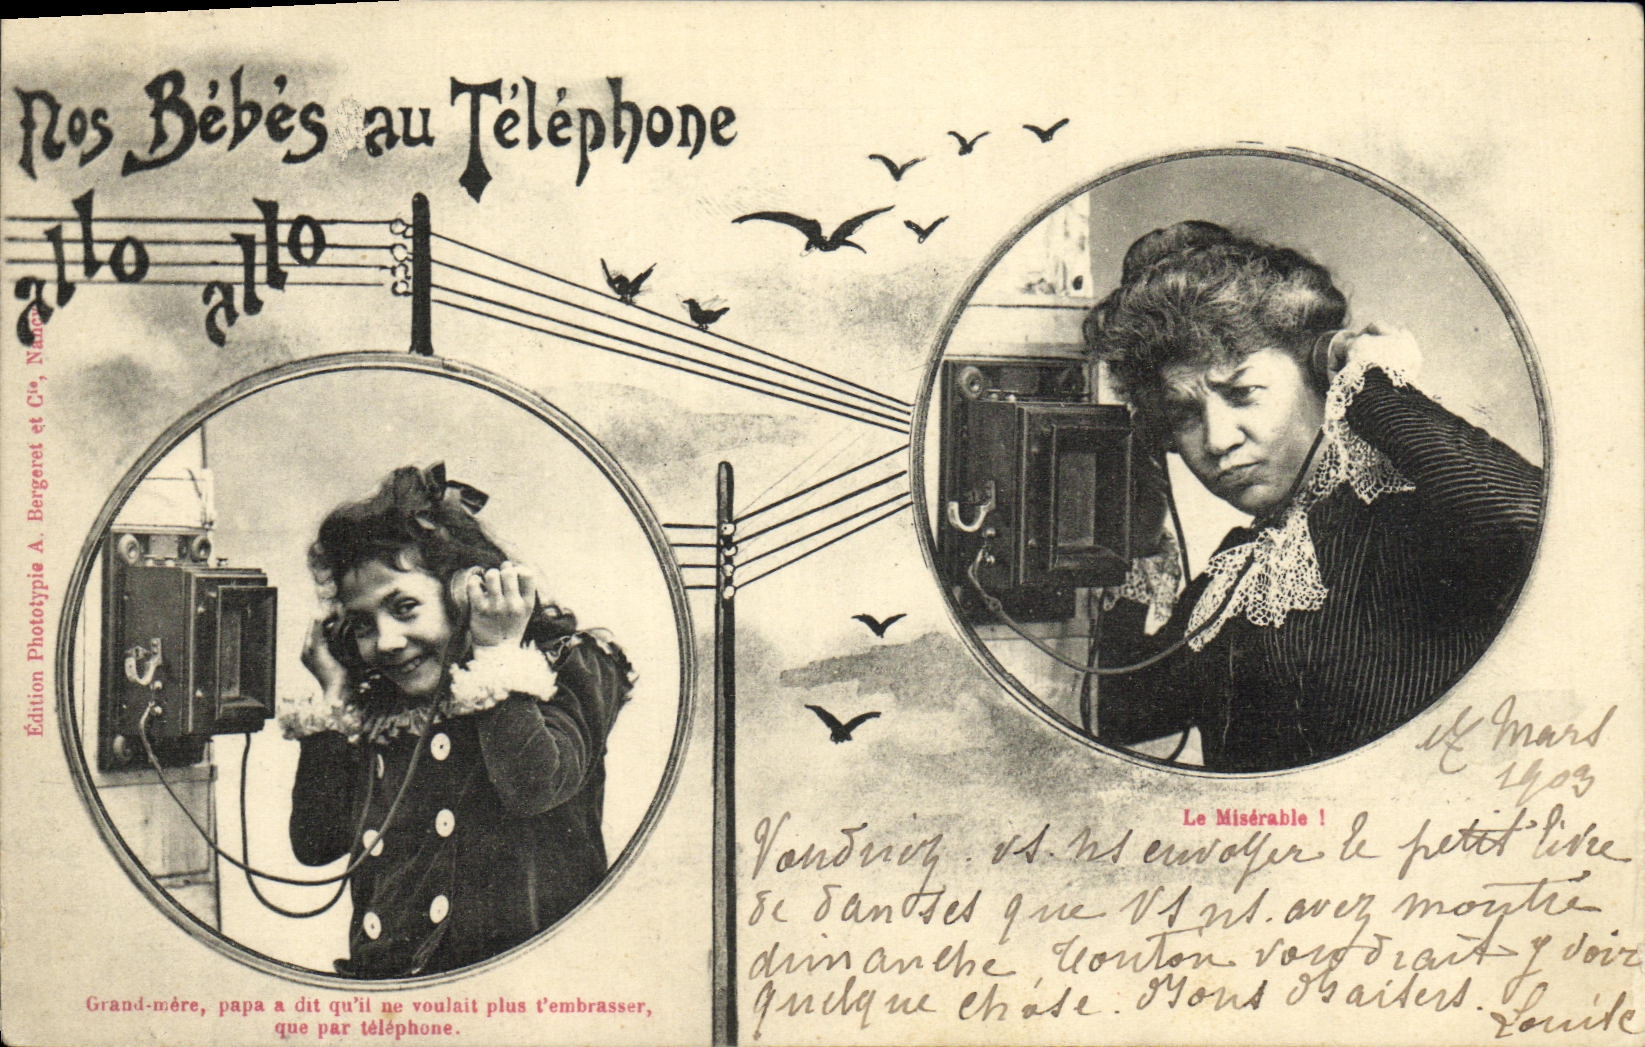 Nos Bébés au Téléphone
allo allo
Édition Phototypie A. Bergeret et Cie, Nancy
Grand-mère, papa a dit qu'il ne voulait plus t'embrasser,
que par téléphone.
Le Misérable !
Mars
1903
Voudriez. vs. ns envoyer le petit livre
de danses que Vs ns. avez montré
dimanche Tonton voudrait y voir
quelque chose. Bons Baisers.
Louise